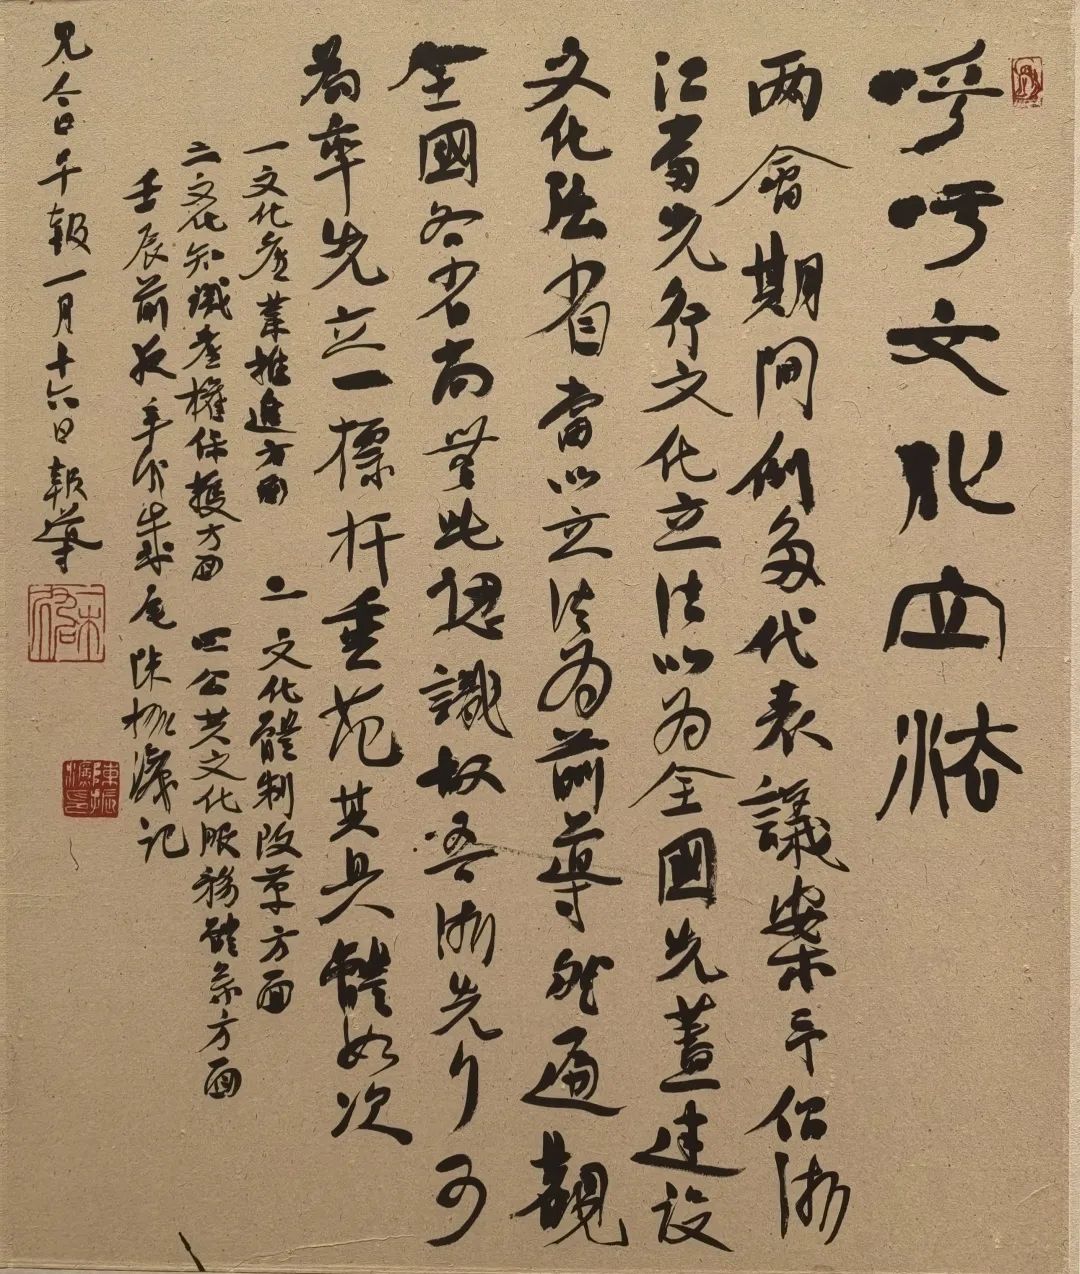 呼吁文化立法
两會期間例多代表議案予倡浙
江當先行文化立法以为全國先蓋建設
文化強省當以立法为前導然遍觀
全國各省尚無此認識故吾浙先行可
為率先立一標杆垂范其具體如次
一文化產業推進方面 二文化體制改革方面
三文化知識產權保護方面 四公共文化服務體系方面
壬辰前夜辛卯歲尾陳振濂記
見今日早報一月十六日報導
陳振濂印